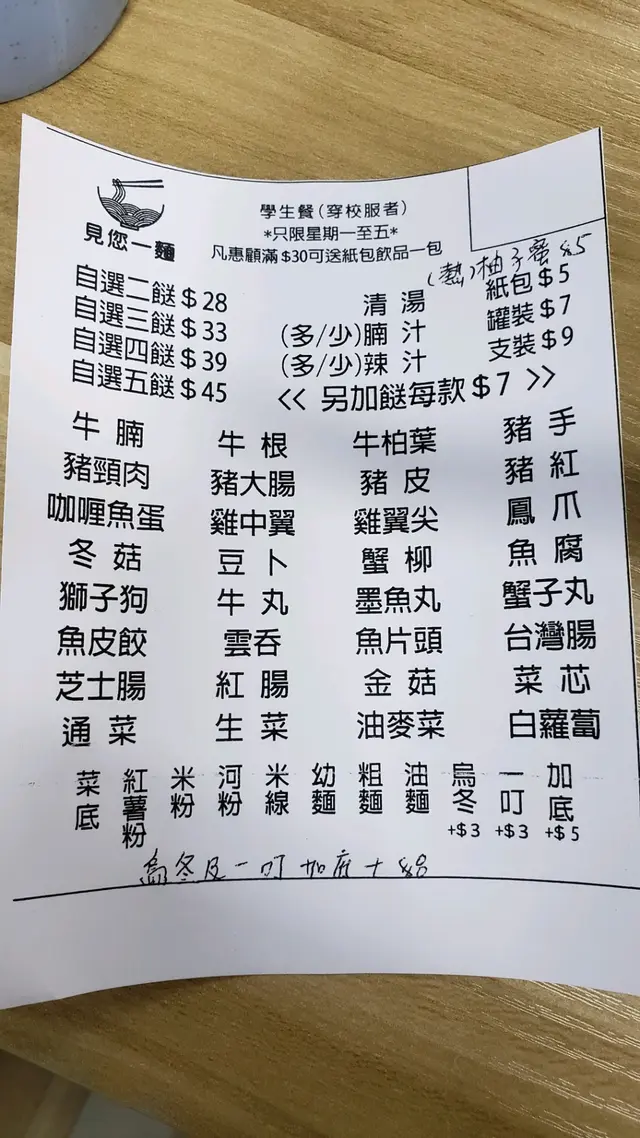 見您一麵
學生餐(穿校服者)
*只限星期一至五*
凡惠顧滿$30可送紙包飲品一包
(熱)柚子蜜 $5
自選二餸$28
自選三餸$33
自選四餸$39
自選五餸$45
清湯
(多/少)腩汁
(多/少)辣汁
紙包$5
罐裝$7
支裝$9
<< 另加餸每款$7 >>
牛腩 牛根 牛柏葉 豬手
豬頸肉 豬大腸 豬皮 豬紅
咖喱魚蛋 雞中翼 雞翼尖 鳳爪
冬菇 豆卜 蟹柳 魚腐
獅子狗 牛丸 墨魚丸 蟹子丸
魚皮餃 雲吞 魚片頭 台灣腸
芝士腸 紅腸 金菇 菜芯
通菜 生菜 油麥菜 白蘿蔔
菜底 紅薯粉 米粉 河粉 米線 幼麵 粗麵 油麵 烏冬 一叮 加底
+$3 +$3 +$5
烏冬及一叮加底+$8